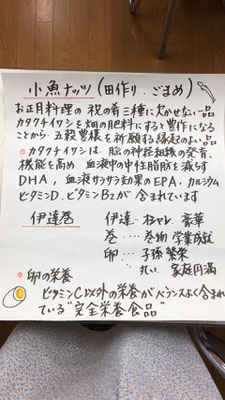 小魚ナッツ(田作り.ごまめ)
お正月料理の祝の肴三種に欠かせない一品
カタクチイワシを畑の肥料にすると豊作になる
ことから五穀豊穣を祈願する縁起のよい品
カタクチイワシは、脳の神経組織の発育、
機能を高め 血液中の中性脂肪を減らす
DHA, 血液サラサラ効果のEPA,カルシウム
ビタミンD.ビタミンB2が含まれています
伊達巻
伊達…オシャレ.豪華
巻‥‥巻物 学業成就
卵‥‥子孫繁栄
丸い 家庭円満
卵の栄養
ビタミンC以外の栄養がバランスよく含まれ
ている"完全栄養食品"